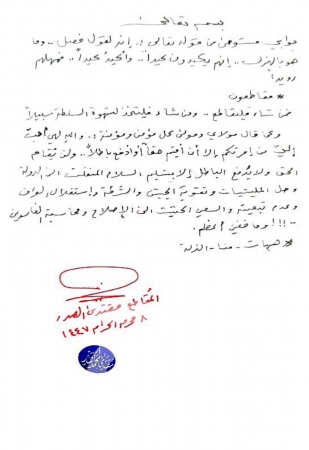 بسمه تعالى
جوابي مستوحى من قوله تعالى: (إنه لقول فصل .. وما
هو بالهزل .. إنهم يكيدون كيداً .. وأكيد كيداً .. فمهل
رويداً
* مقاطعون
فمن شاء فليقاطع .. ومن شاء فليتخذ لشهوة السلطة سبيلاً
وكما قال مولاي ومولى كل مؤمن ومؤمنة: (والله لهي أحبّ
إليّ من إمرتكم إلا أن أقيم حقاً أو أدفع باطلاً .. ولن يُقام
الحق ولا يُدفع الباطل إلا بتسليم السلاح المنفلت إلى يد الدولة
وحل المليشيات وتقوية الجيش والشرطة وإستقلال العراق
وعدم تبعيته والسعي الحثيث الى الإصلاح ومحاسبة الفاسدين
..!!!! وما خفي أعظم.
* هيهات .. منا .. الذلة
المُقاطع مقتدى الصدر
٨ محرم الحرام ١٤٤٧